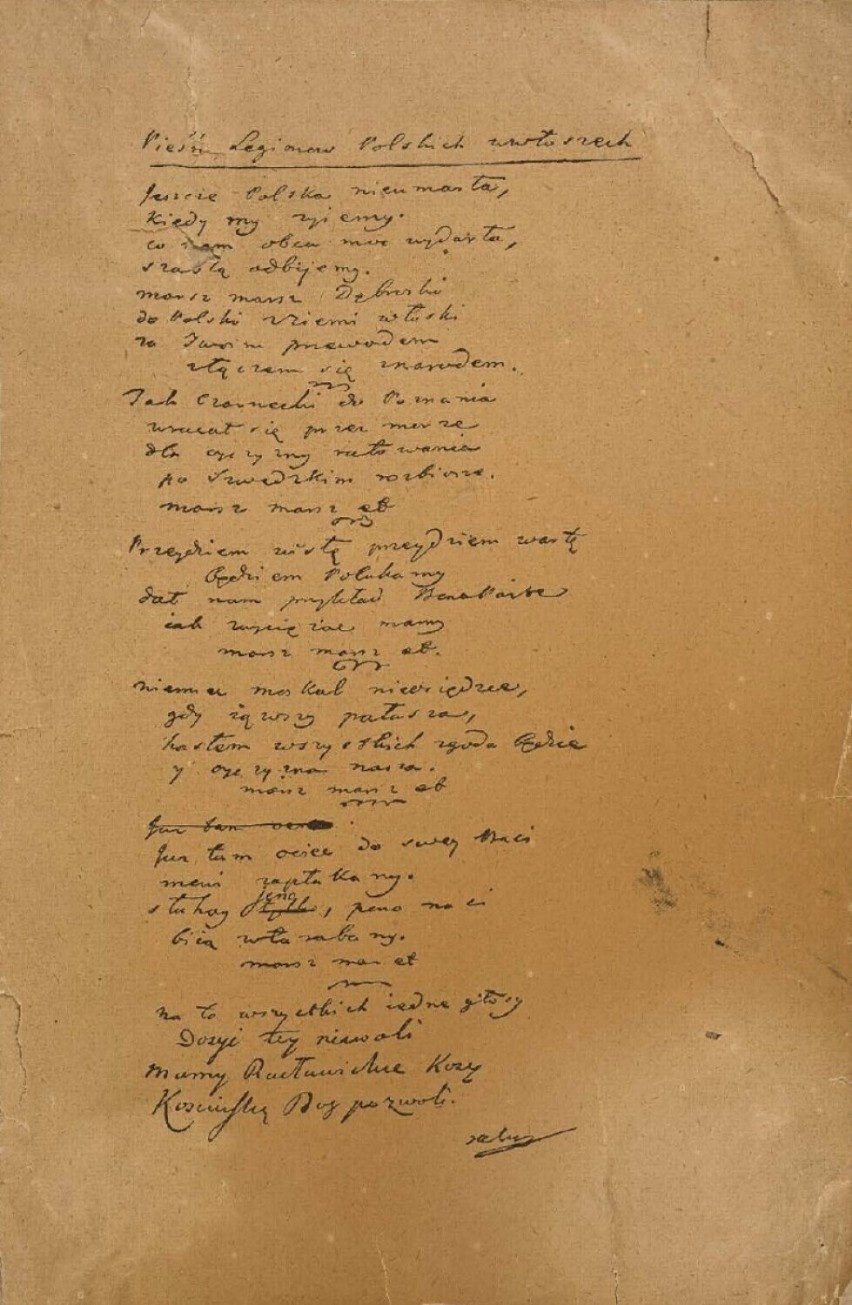 Pieśń Legionow Polskich wewłoszech
Jeszcze Polska nieumarła,
kiedy my żyiemy.
co nam obca moc wydarła,
szablą odbijemy.
marsz marsz Dąbroski
do Polski zziemi włoski
za Twoim przewodem
złączem się znarodem.
Jak Czarnecki do Poznania
wracał się przez morze
dla oyczyzny ratowania
po Szwedzkim rozbiorze.
marsz marsz et
Przeydziem wisłę przeydziem wartę
będziem Polakamy
dał nam przykład BonaParte
iak zwycięzać mamy
marsz marsz et.
niemiec moskal nieosiędzie,
gdy iąwszy pałasza,
hasłem wszystkich zgoda będzie
y oyczyzna nasza.
marsz marsz et
Juz tam
Juz tam ociec do swey Basi
mówi zapłakany.
słuchay jeno, pono nasi
biią wtarabany.
marsz mar et
na to wszystkich iedne głosy
Dosyć tey niewoli
Mamy Racławickie Kosy
Kosciuszkę Bog pozwoli.